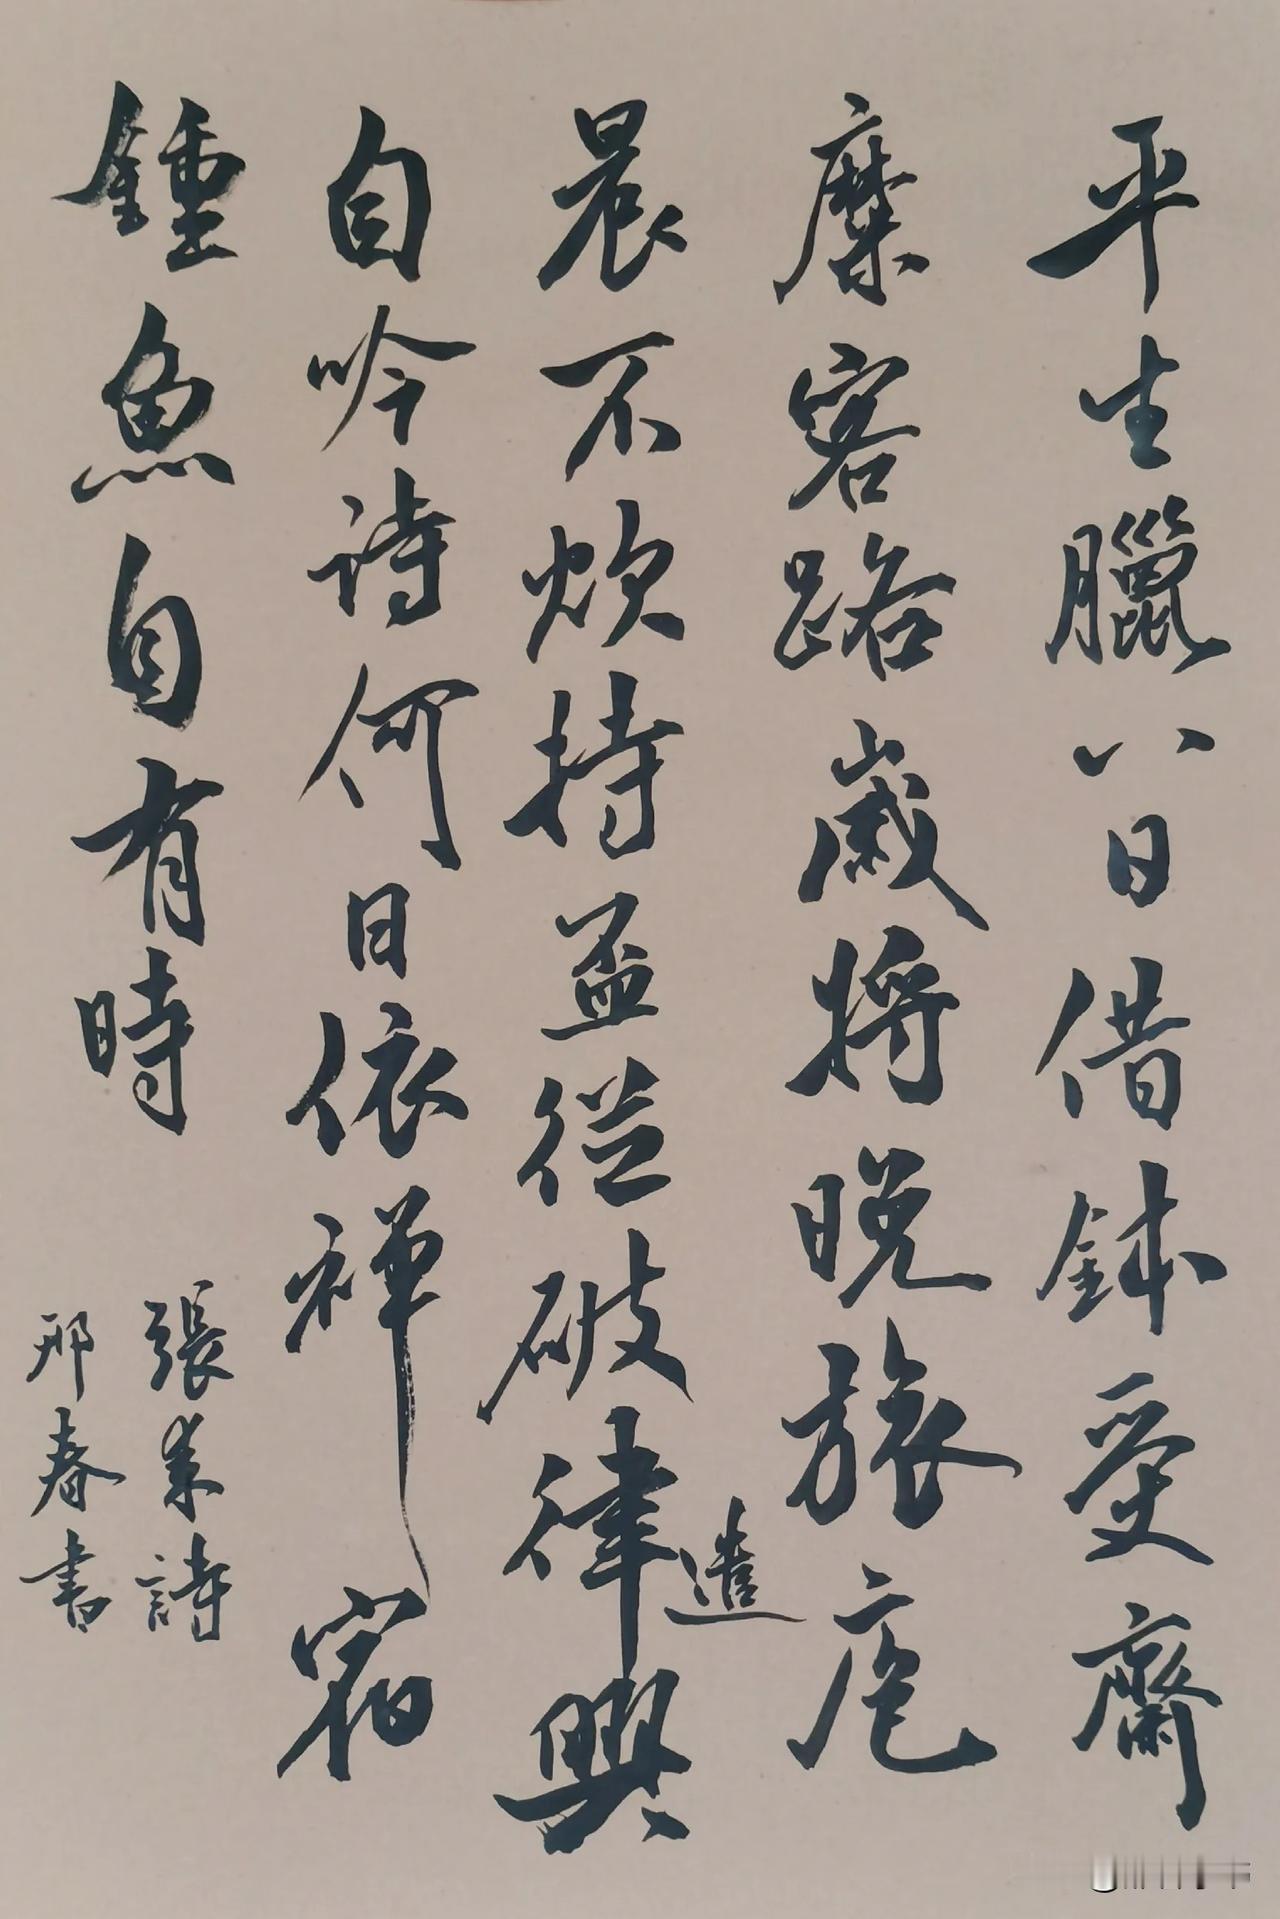 平生臘八日借鉢受齋
糜客路歲將晚旅庖
晨不炊持盂從破律遣興
自吟詩何日依禪宿
鍾魚自有時
張耒詩
邢春書